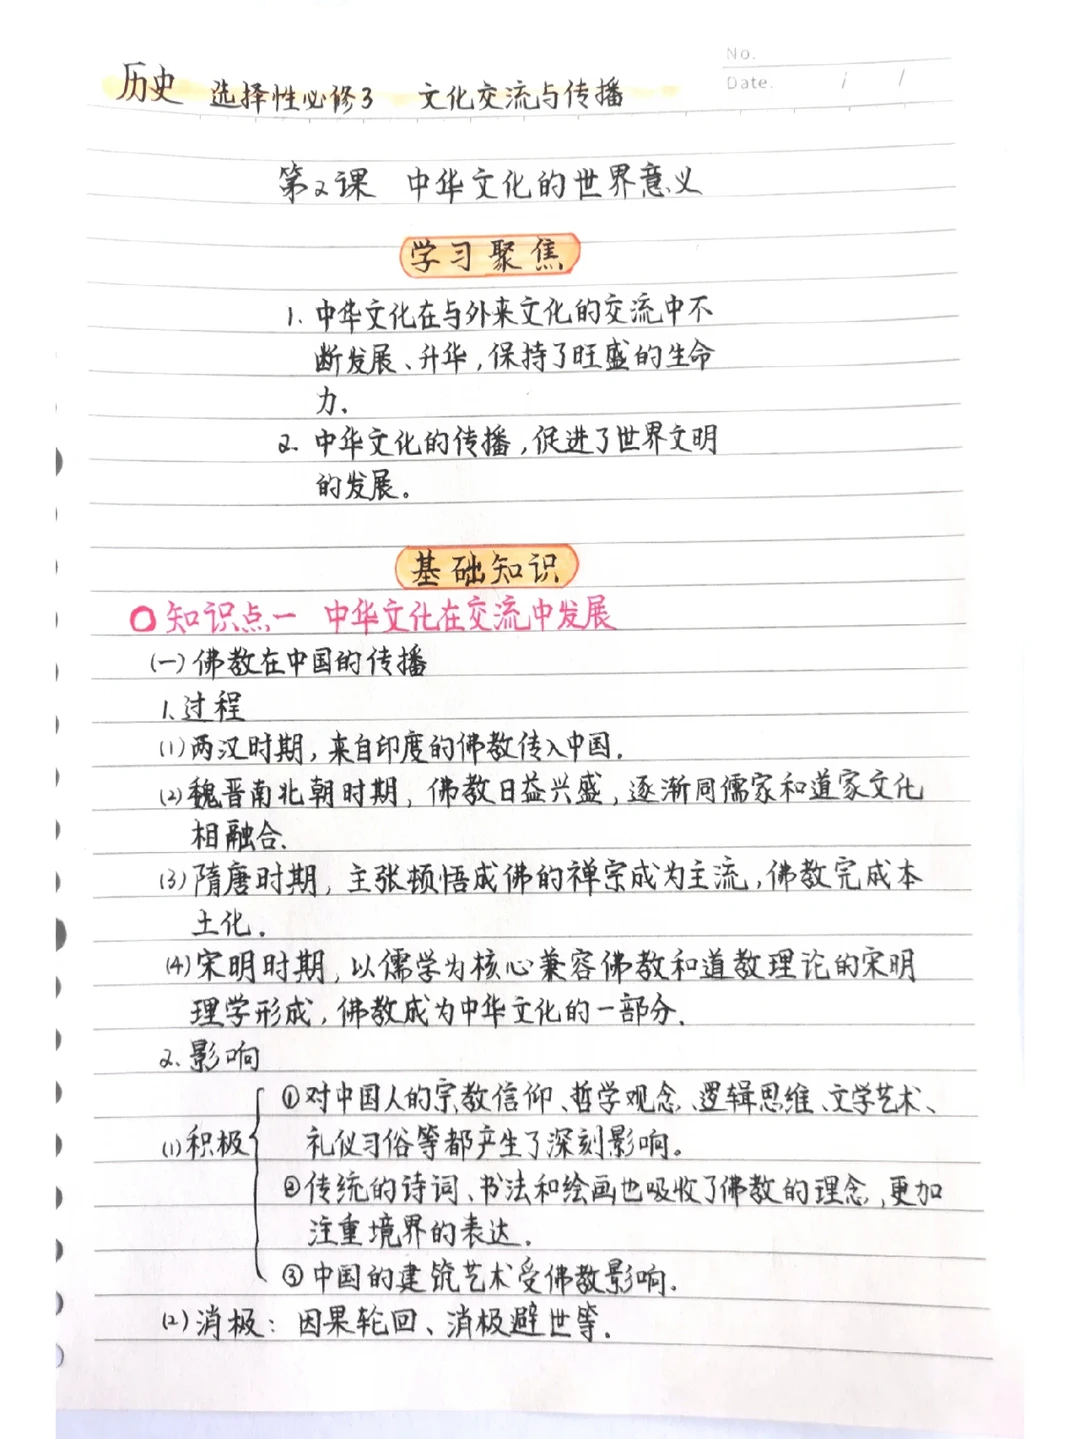 No.
Date. / /
历史 选择性必修3 文化交流与传播
第2课 中华文化的世界意义
学习聚焦
1. 中华文化在与外来文化的交流中不
断发展、升华,保持了旺盛的生命
力.
2. 中华文化的传播,促进了世界文明
的发展。
基础知识
知识点一 中华文化在交流中发展
(一)佛教在中国的传播
1.过程
(1)两汉时期,来自印度的佛教传入中国.
(2)魏晋南北朝时期,佛教日益兴盛,逐渐同儒家和道家文化
相融合.
(3)隋唐时期,主张顿悟成佛的禅宗成为主流,佛教完成本
土化.
(4)宋明时期,以儒学为核心兼容佛教和道教理论的宋明
理学形成,佛教成为中华文化的一部分.
2.影响
(1)积极
①对中国人的宗教信仰、哲学观念、逻辑思维、文学艺术、
礼仪习俗等都产生了深刻影响。
②传统的诗词、书法和绘画也吸收了佛教的理念,更加
注重境界的表达.
③中国的建筑艺术受佛教影响.
(2)消极:因果轮回、消极避世等.